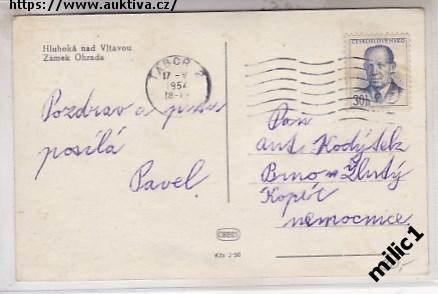 https://www.auktiva.cz/
Hluboká nad Vltavou
Zámek Ohrada
TÁBOR 2
17 -V
1954
18-
ČESKOSLOVENSKO
30h
Pozdrav a
posílá
Pavel
Pan
ant. Kodýtek
Brno - Žlutý
Kopec
nemocnice
ORBIS
Kčs 1·50
milic1